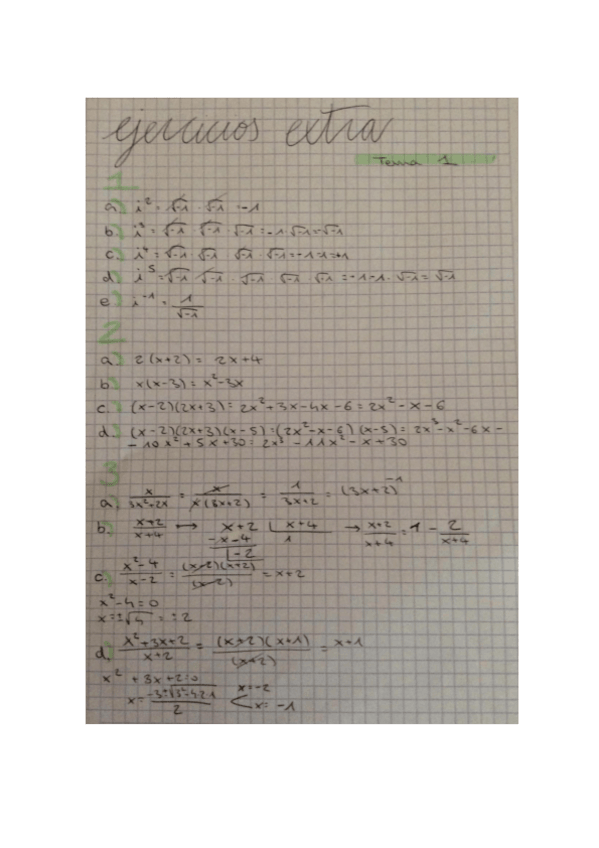 ejercicios extra
Tema 1
1
a) i² = √-1 · √-1 = -1
b) i³ = √-1 √-1 · √-1 = -1 · √-1 = √-1
c. i⁴ = √-1 · √-1 √-1 · √-1 = -1 · -1 = +1
d) i⁵ = √-1 · √-1 · √-1 √-1 · √-1 = -1 · -1 · √-1 = √-1
e) i⁻¹ = 1/√-1
2
a) 2(x+2) = 2x+4
b) x(x-3) = x²-3x
c. (x-2)(2x+3) = 2x²+3x-4x-6 = 2x²-x-6
d. (x-2)(2x+3)(x-5) = (2x²-x-6)(x-5) = 2x³-x²-6x-
-10x²+5x+30 = 2x³-11x²-x+30
3
a) x/(3x²+2x) = x/(x(3x+2)) = 1/(3x+2) = (3x+2)⁻¹
b. (x+2)/(x+4) ↔ x+2 | x+4 → (x+2)/(x+4) = 1 - 2/(x+4)
-x-4 1
-2
c. (x²-4)/(x-2) = (x-2)(x+2)/(x-2) = x+2
x²-4=0
x=±√4 = ±2
d, (x²+3x+2)/(x+2) = (x+2)(x+1)/(x+2) = x+1
x²+3x+2=0
x = (-3±√3²-4·2·1)/2 x=-2
x=-1